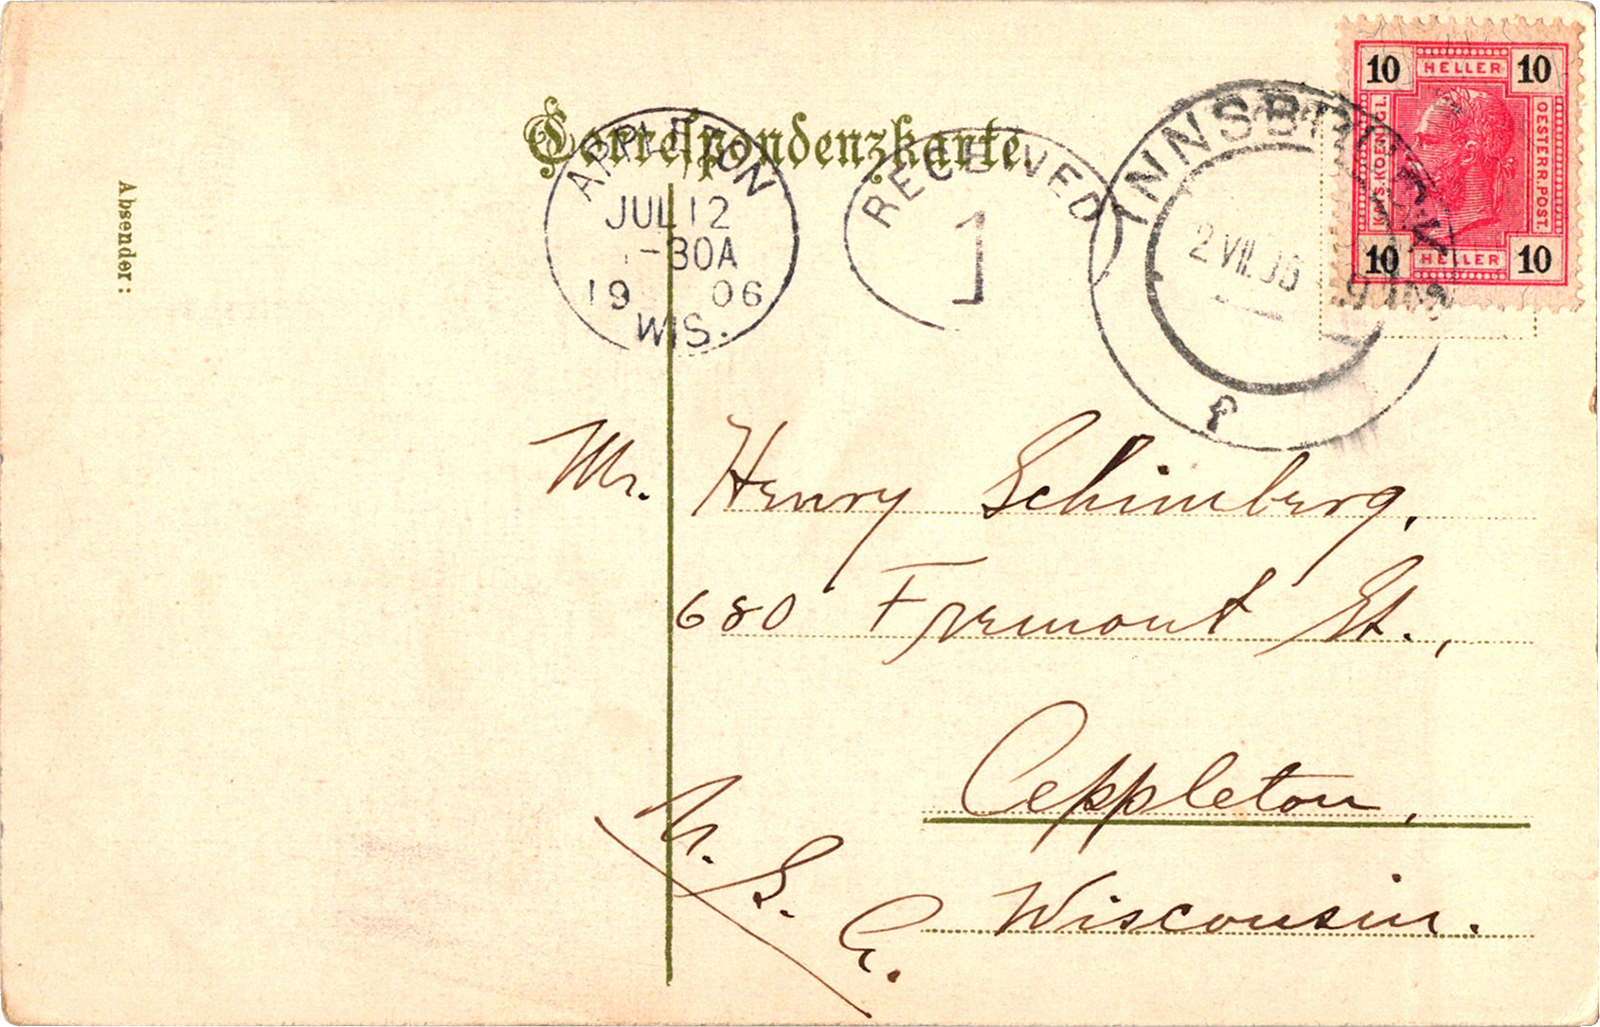 Correspondenzkarte.
Absender:
APPLETON
JUL 12
-30A
19 06
WIS.
RECEIVED
1
INNSBRUCK
2 VII. 06
f
10 HELLER 10
KAIS. KOENIGL.
OESTERR. POST.
10 HELLER 10
Mr. Henry Schimberg,
680 Fremont St.,
Appleton,
Wisconsin.
U. S. A.